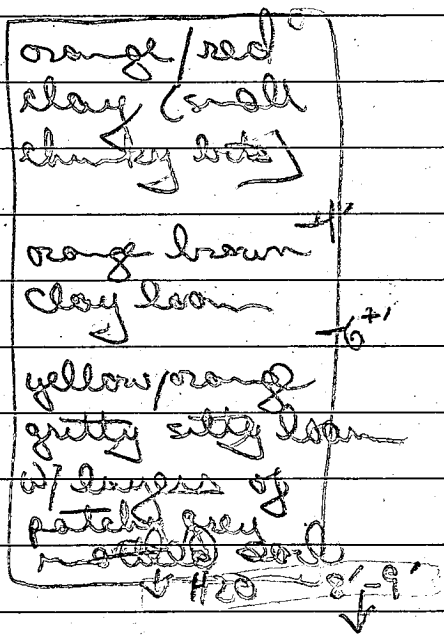 orange/red
clay (small
chunky bits)
4'
orange brown
clay loam
6+'
yellow/orange
gritty silty loam
w/ layers of
patchy grey
mottled soil
↓ H20 8'-9'
↓